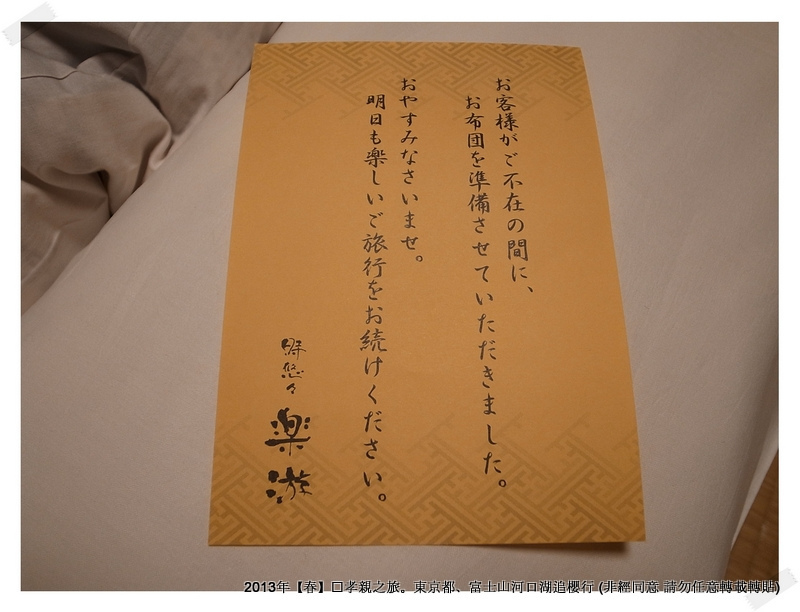 お客様がご不在の間に、
お布団を準備させていただきました。
おやすみなさいませ。
明日も楽しいご旅行をお続けください。
悠々
楽游
2013年【春】口孝親之旅。東京都、富士山河口湖追櫻行 (非經同意 請勿任意轉載轉貼)